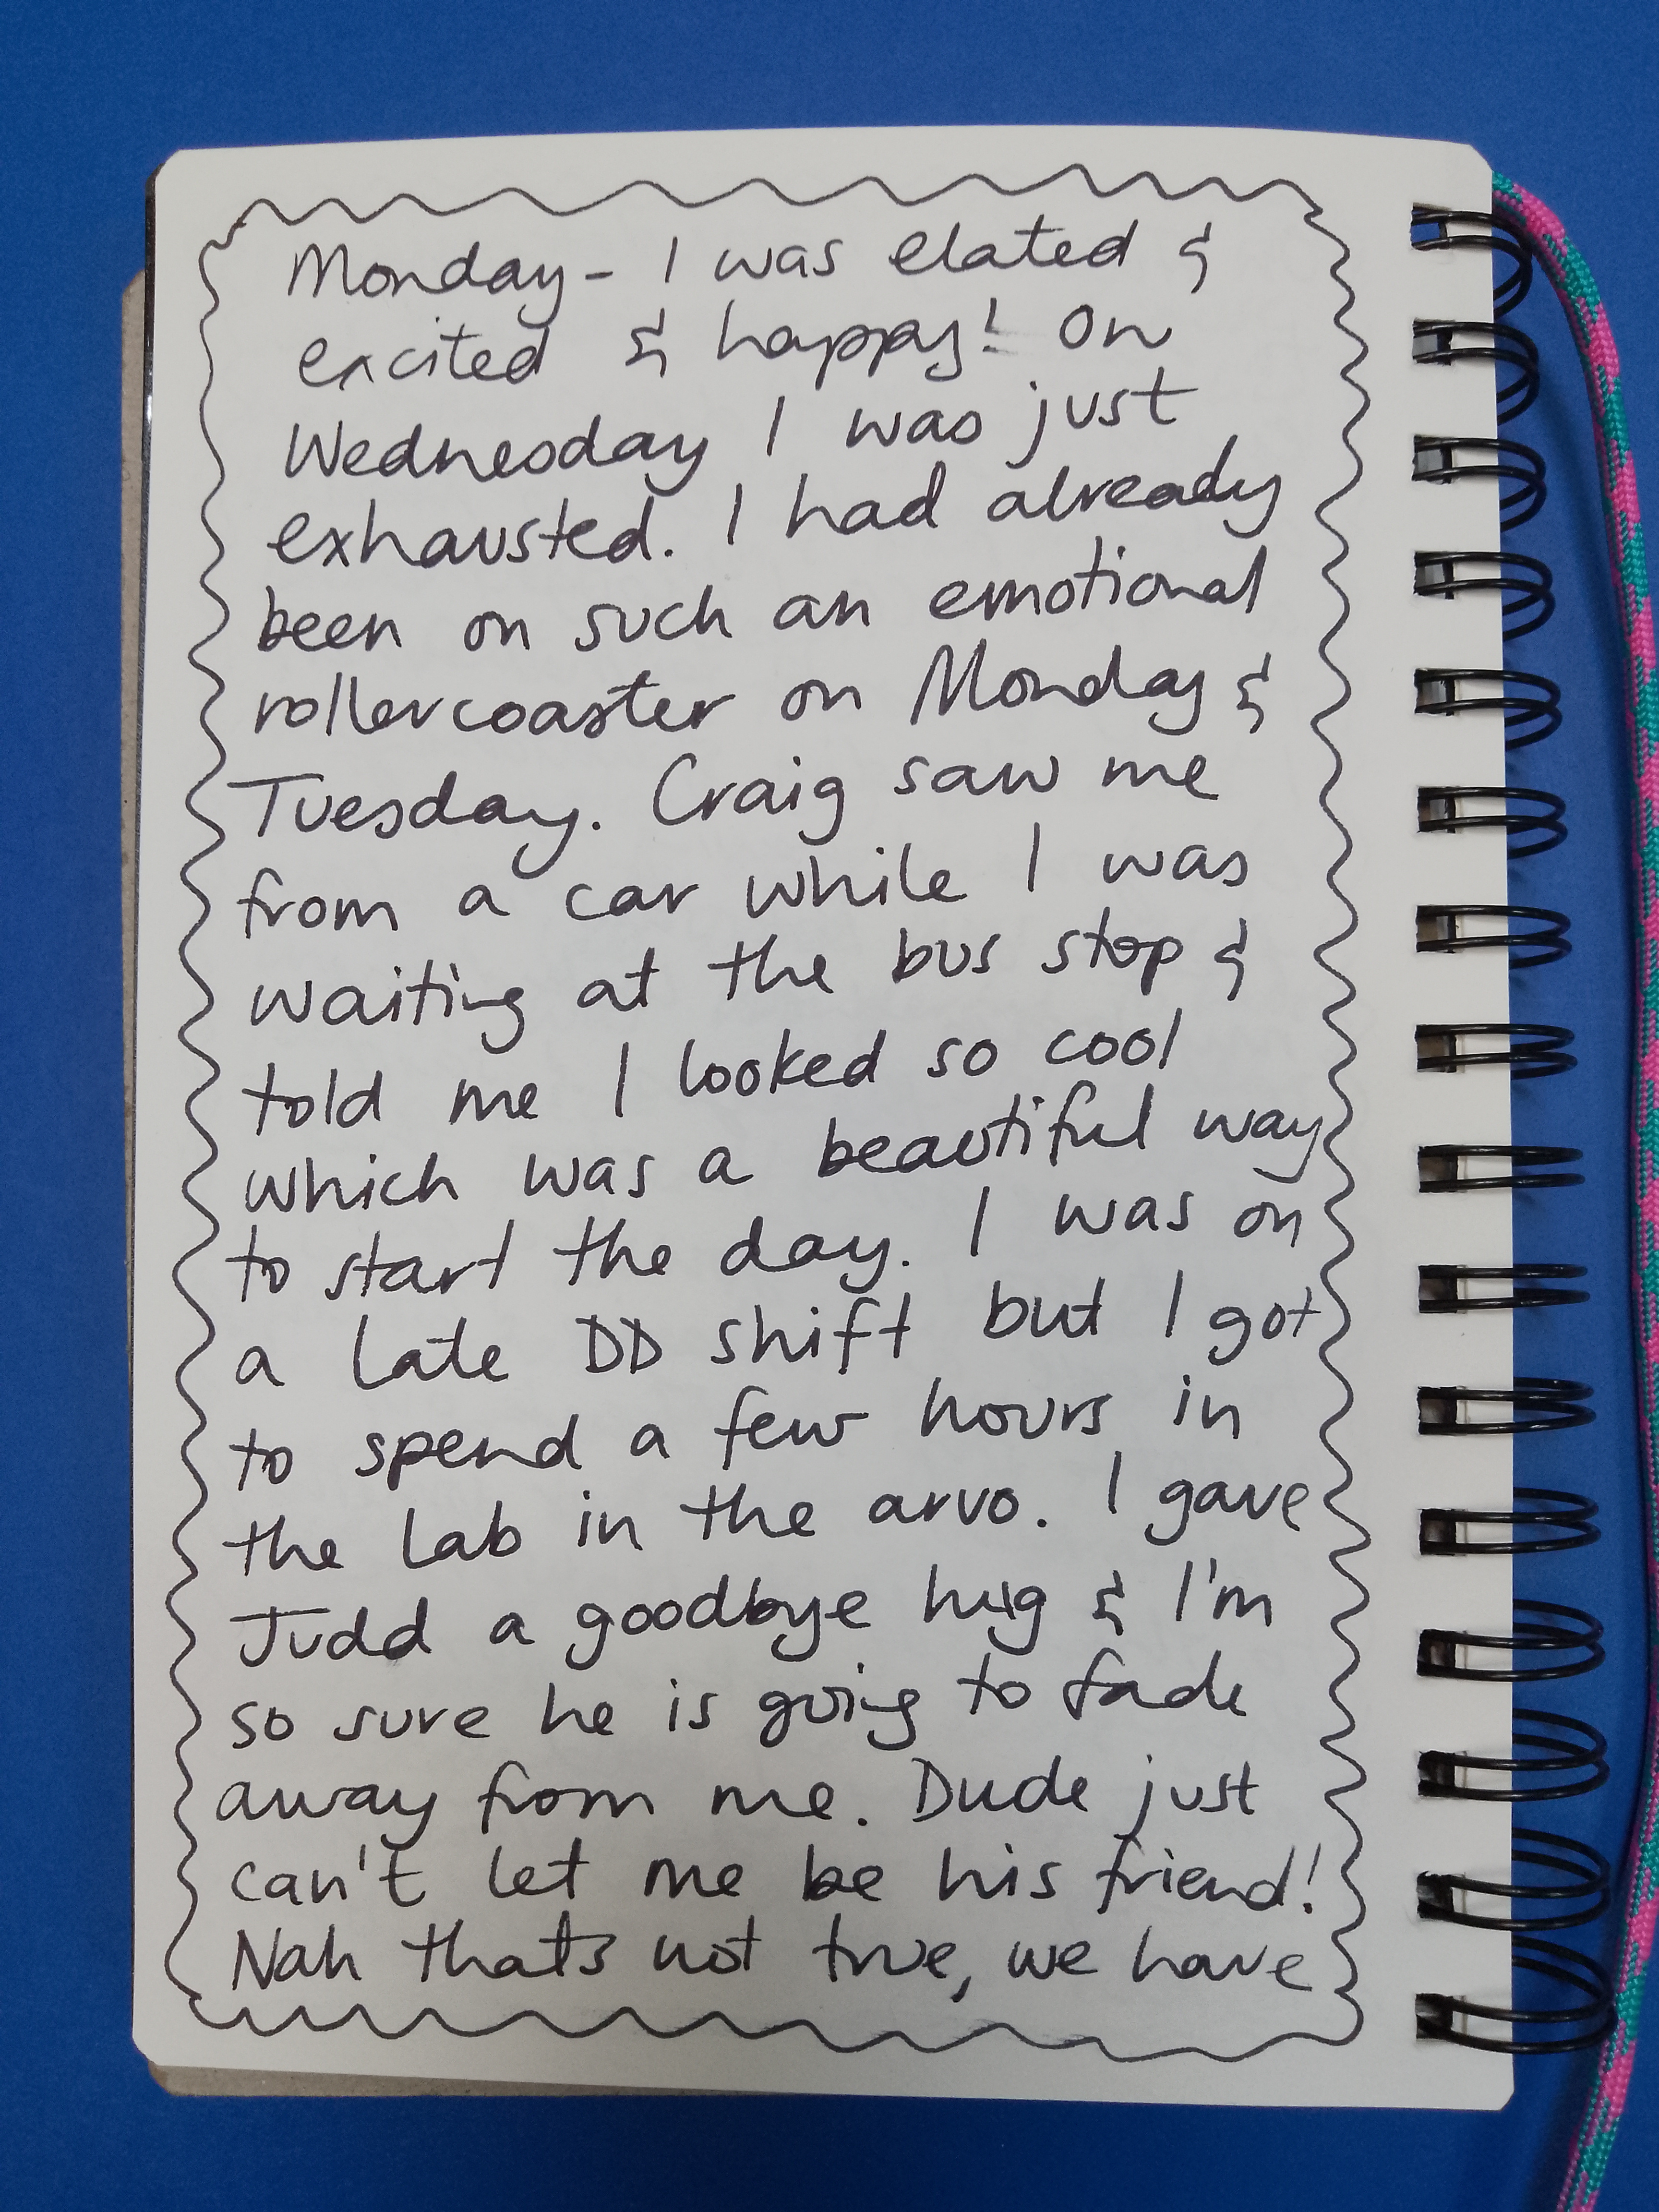 Monday - I was elated &
excited & happy! On
Wednesday I was just
exhausted. I had already
been on such an emotional
rollercoaster on Monday &
Tuesday. Craig saw me
from a car while I was
waiting at the bus stop &
told me I looked so cool
which was a beautiful way
to start the day. I was on
a late DD shift but I got
to spend a few hours in
the lab in the arvo. I gave
Judd a goodbye hug & I'm
so sure he is going to fade
away from me. Dude just
can't let me be his friend!
Nah thats not true, we have